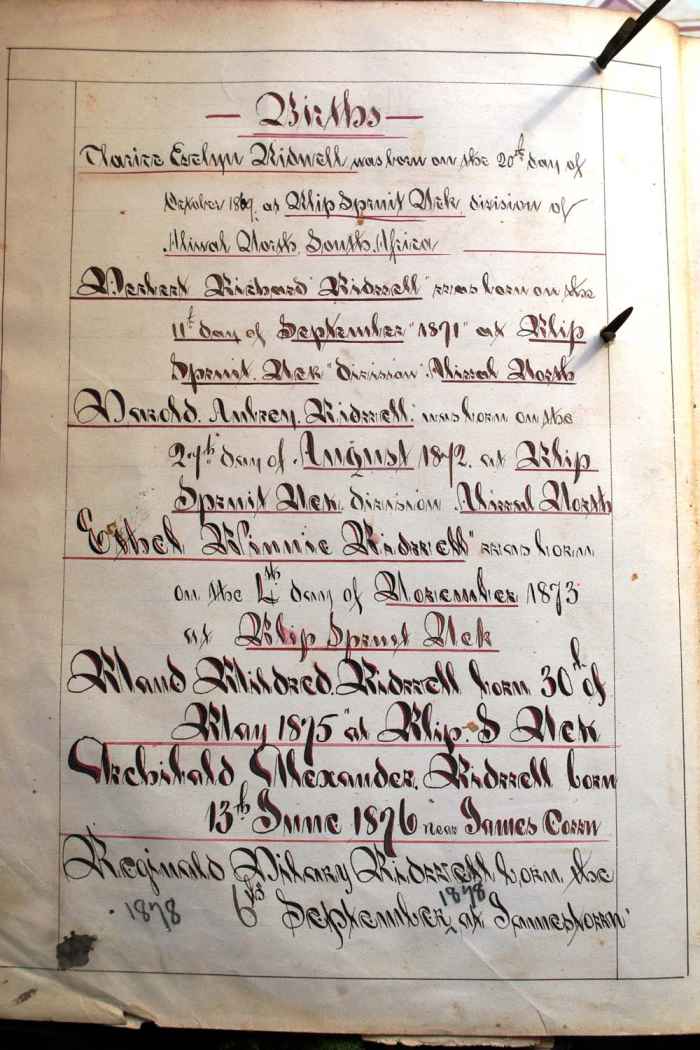 — Births —
Clarice Evelyn Kidwell was born on the 20th day of
October 1869. at Klip Spruit Nek division of
Aliwal North. South. Africa
Herbert Richard Kidwell" was born on the
11th day of September "1871" at Klip
Spruit. Nek "division". Aliwal North
Harold. Aubrey. Kidwell. was born on the
27th day of. August 1872. at Klip
Spruit Nek. division. Aliwal North
Ethel Winnie Kidwell" was born
on the 4th day of November 1873
at Klip Spruit Nek
Maud Mildred. Kidwell born 30th of
May 1875" at Klip. S Nek
Archibald Alexander. Kidwell born
13th June 1876 near James Town
Reginald Hilary Kidwell born the
1878 6th September 1878 at Jamestown"